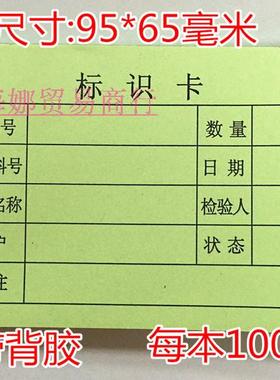 尺寸:95*65毫米
标识卡
娜贸易商行
号 数量
料号 日期
名称 检验人
户 状态
注
带背胶 每本100